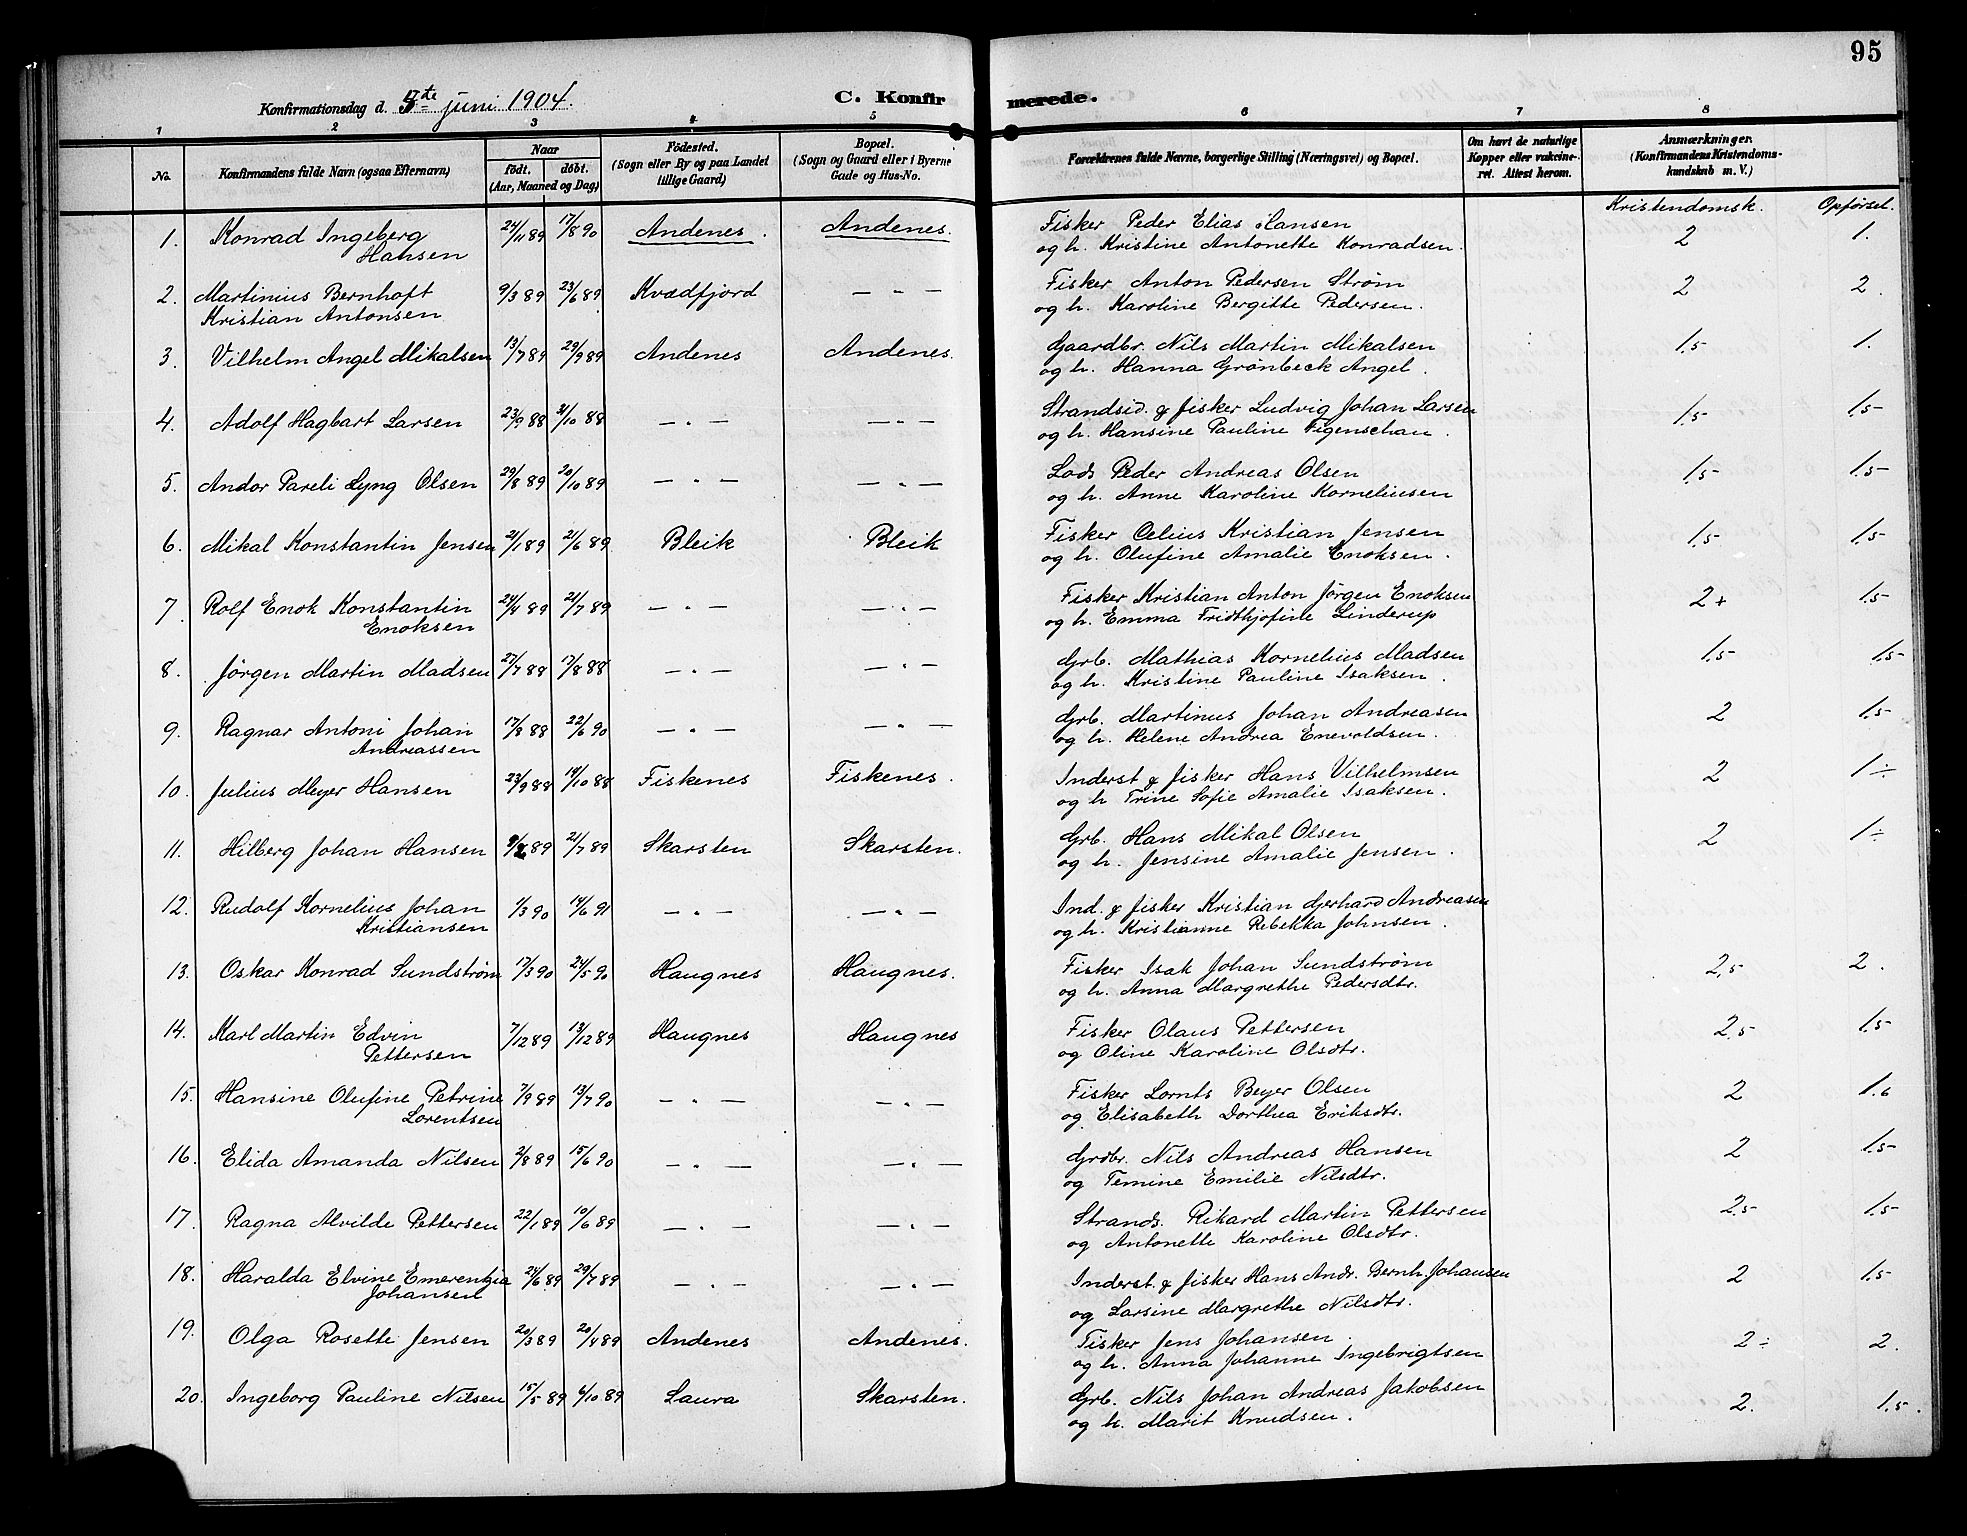 95
Konfirmationsdag d. 5te juni 1904.
C. Konfirmerede.
1 2 3 4 5 6 7 8
No.
Konfirmandens fulde Navn (ogsaa Efternavn)
Naar
født. døbt.
(Aar, Maaned og Dag)
Fødested.
(Sogn eller By og paa Landet
tillige Gaard)
Bopæl.
(Sogn og Gaard eller i Byerne
Gade og Hus-No.
Forældrenes fulde Navne, borgerlige Stilling (Næringsvei) og Bopæl.
Om havt de naturlige
Kopper eller vakcine-
ret. Attest herom.
Anmærkninger.
(Konfirmandens Kristendoms-
kundskab m. V.)
Kristendomsk. Opførsel.
1. Konrad Ingeberg 24/11 89 17/8 90 Andenes. Andenes. Fisker Peder Elias Hansen 2 1.
Hansen og h. Kristine Antonette Konradsen.
2. Martinius Bernhoft 9/3 89 23/6 89 Kvædfjord — " — Fisker Anton Pedersen Strøm 2 2.
Kristian Antonsen og h. Karoline Bergitte Pedersen.
3. Vilhelm Angel Mikalsen 13/7 89 29/9 89 Andenes Andenes. Gaardbr. Nils Martin Mikalsen 1.5- 1.
og h. Hanna Grønbeck Angel.
4. Adolf Hagbart Larsen 23/9 88 31/10 88 — " — — " — Strandsid. & fisker Ludvig Johan Larsen 1.5- 1.5-
og h. Hansine Pauline Figenschau.
5. Andor Pareli Lyng Olsen 29/8 89 20/10 89 — " — — " — Lods Peder Andreas Olsen 1.5- 1.5-
og h. Anne Karoline Korneliusen
6. Mikal Konstantin Jensen 21/1 89 21/6 89 Bleik Bleik Fisker Celius Kristian Jensen 1.5- 1.5-
og h. Olufine Amalie Enoksen.
7. Rolf Enok Konstantin 24/4 89 21/7 89 — " — — " — Fisker Kristian Anton Jørgen Enoksen 2+ 1.5-
Enoksen og h. Emma Fridthjofine Linderup
8. Jørgen Martin Madsen 27/7 88 17/8 88 — " — — " — Grb. Mathias Kornelius Madsen 1.5- 1.5-
og h. Kristine Pauline Isaksen.
9. Ragnar Antoni Johan 17/8 88 22/6 90 — " — — " — Grb. Martinus Johan Andreasen 2 1.5-
Andreassen og h. Helene Andrea Enevoldsen.
10. Julius Meyer Hansen 23/9 88 14/10 88 Fiskenes Fiskenes. Inderst & fisker Hans Vilhelmsen 2 1÷
og h Trine Sofie Amalie Isaksen.
11. Hilberg Johan Hansen 9/2 89 21/7 89 Skarsten Skarsten. Grb. Hans Mikal Olsen 2 1÷
og h. Jensine Amalie Jensen.
12. Rudolf Kornelius Johan 1/3 90 14/6 91 — " — — " — Ind. & fisker Kristian Gerhard Andreasen
Kristiansen og h. Kristianne Rebekka Johnsen.
13. Oskar Konrad Sundstrøm 17/3 90 24/5 90 Haugnes Haugnes. Fisker Isak Johan Sundstrøm 2,5- 2.
og h. Anna Margrethe Pedersdtr.
14. Karl Martin Edvin 7/12 89 13/12 89 Haugnes Haugnes Fisker Olaus Pettersen 2,5- 1.5-
Pettersen og Oline Karoline Olsdtr.
15. Hansine Olufine Petrine 7/9 89 13/7 90 — " — — " — Fisker Lornts Beyer Olsen 2 1.6
Lorentsen og Elisabeth Dorthea Eriksdtr.
16. Elida Amanda Nilsen 2/8 89 15/6 90 — " — — " — Grdbr. Nils Andreas Hansen 2 1.5-
og Temine Emilie Nilsdtr.
17. Ragna Alvilde Pettersen 22/1 89 10/6 89 — " — — " — Strands. Rikard Martin Pettersen 2.5- 1.5-
og Antonette Karoline Olsdtr.
18. Haralda Elvine Emerentzia 24/6 89 29/7 89 — " — — " — Inderst. & fisker Hans Andr. Bernh. Johansen 2 1.5-
Johansen og Larsine Margrethe Nilsdtr.
19. Olga Rosette Jensen 20/3 89 20/4 89 Andenes Andenes. Fisker Jens Johansen. 2÷ 2.
og h. Anna Johanne Ingebrigtsen
20. Ingeborg Pauline Nilsen 15/5 89 6/10 89 Laura Skarsten. Grb. Nils Johan Andreas Jakobsen 2. 1.5.
og h. Marit Knudsen.